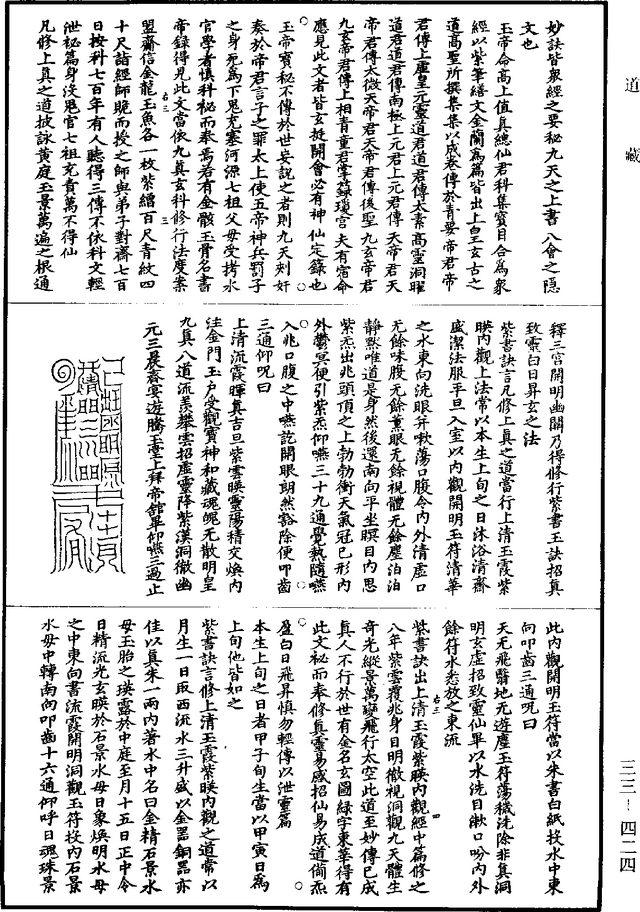 道藏
妙訣皆衆經之要秘九天之上書八會之隱
文也
玉帝命高上值真總仙君科集寶目合爲衆
經以紫筆繕文金蘭爲篇皆出上皇玄古之
道高聖所撰集集以成卷傳於青要帝君帝
君傳上虛皇元靈道君道君傳太素高靈洞曜
道君道君傳南極上元君上元君傳天帝君天
帝君傳太微天帝君天帝君傳後聖九玄帝君
九玄帝君傳上相青童君掌錄瓊宮夫有宿命
應見此文者皆玄挺開會必有神仙定錄也
玉帝寶秘不傳於世妄說之者則九天刻奸
奏於帝君言子之罪太上使五帝神兵罰子
之身死爲下鬼充塞河源七祖父母受拷水
官學者慎科秘而奉焉若有金骸玉骨名書
帝錄得見此文當依九真玄科修行法度案
右三 三
盟齋信金龍玉魚各一枚紫繒百尺青紋四
十尺詣經師跪而授之師與弟子對齋七百
日按科七百年有人聽得三傳不依科文輕
泄秘篇身沒鬼官七祖充責萬不得仙
凡修上真之道披詠黃庭玉景萬遍之根通
釋三宮開明幽關乃得修行紫書玉訣招真
致靈白日昇玄之法
紫書訣言凡修上真之道當行上清玉霞紫
暎內觀上法常以本生上旬之日沐浴清齋
盛潔法服平旦入室以內觀開明玉符清華
之水東向洗眼并嗽蕩口腹令內外清虛口
无餘味腹无餘熏眼无餘視體无餘塵泊泊
靜默唯道是身然後還南向平坐瞑目內思
紫炁出兆頭頂之上勃勃衝天氣冠已形內
外鬱冥便引紫炁仰嚥三十九通覺熱隨嚥
入兆口腹之中嚥訖開眼朗然豁除便叩齒
三通仰呪曰
上清流霞暉真吉旦紫雲暎靈陽精交煥內
注金門玉戶受觀寶神和藏魂魄无散明皇
九真八道流羙攀雲招虛靈降紫漢洞徹幽
元三晨齋宴遊騰玉堂上拜帝舘畢仰嚥三過止
此內觀開明玉符當以朱書白紙投水中東
向叩齒三通呪曰
天无飛翳地无遊塵玉符蕩穢洗除非真洞
明玄虛招致靈仙畢以水洗目漱口吩內外
餘符水悉放之東流
右三 四
紫書訣出上清玉霞紫暎內觀經中篇修之
八年紫雲覆兆身日明徹視洞觀九天體生
奇光縱景萬變飛行太空此道至妙傳已成
真人不行於世有金名玄圖綠字東華得有
此文秘而奉修真靈易感招仙易成道備炁
盈白日飛昇慎勿輕傳以泄靈篇
本生上旬之日者甲子旬生當以甲寅日爲
上旬他皆如之
紫書訣言修上清玉霞紫暎內觀之道常以
月生一日取西流水三升盛以金器銅器亦
佳以真朱一兩內著水中名曰金精石景水
母玉胎之瑛露於中庭至月十五日正中令
日精流光玄暎於石景水母日象煥明水母
之中東向書流霞開明洞觀玉符投內石景
水母中轉南向叩齒十六通仰呼日魂珠景
三三—四二四